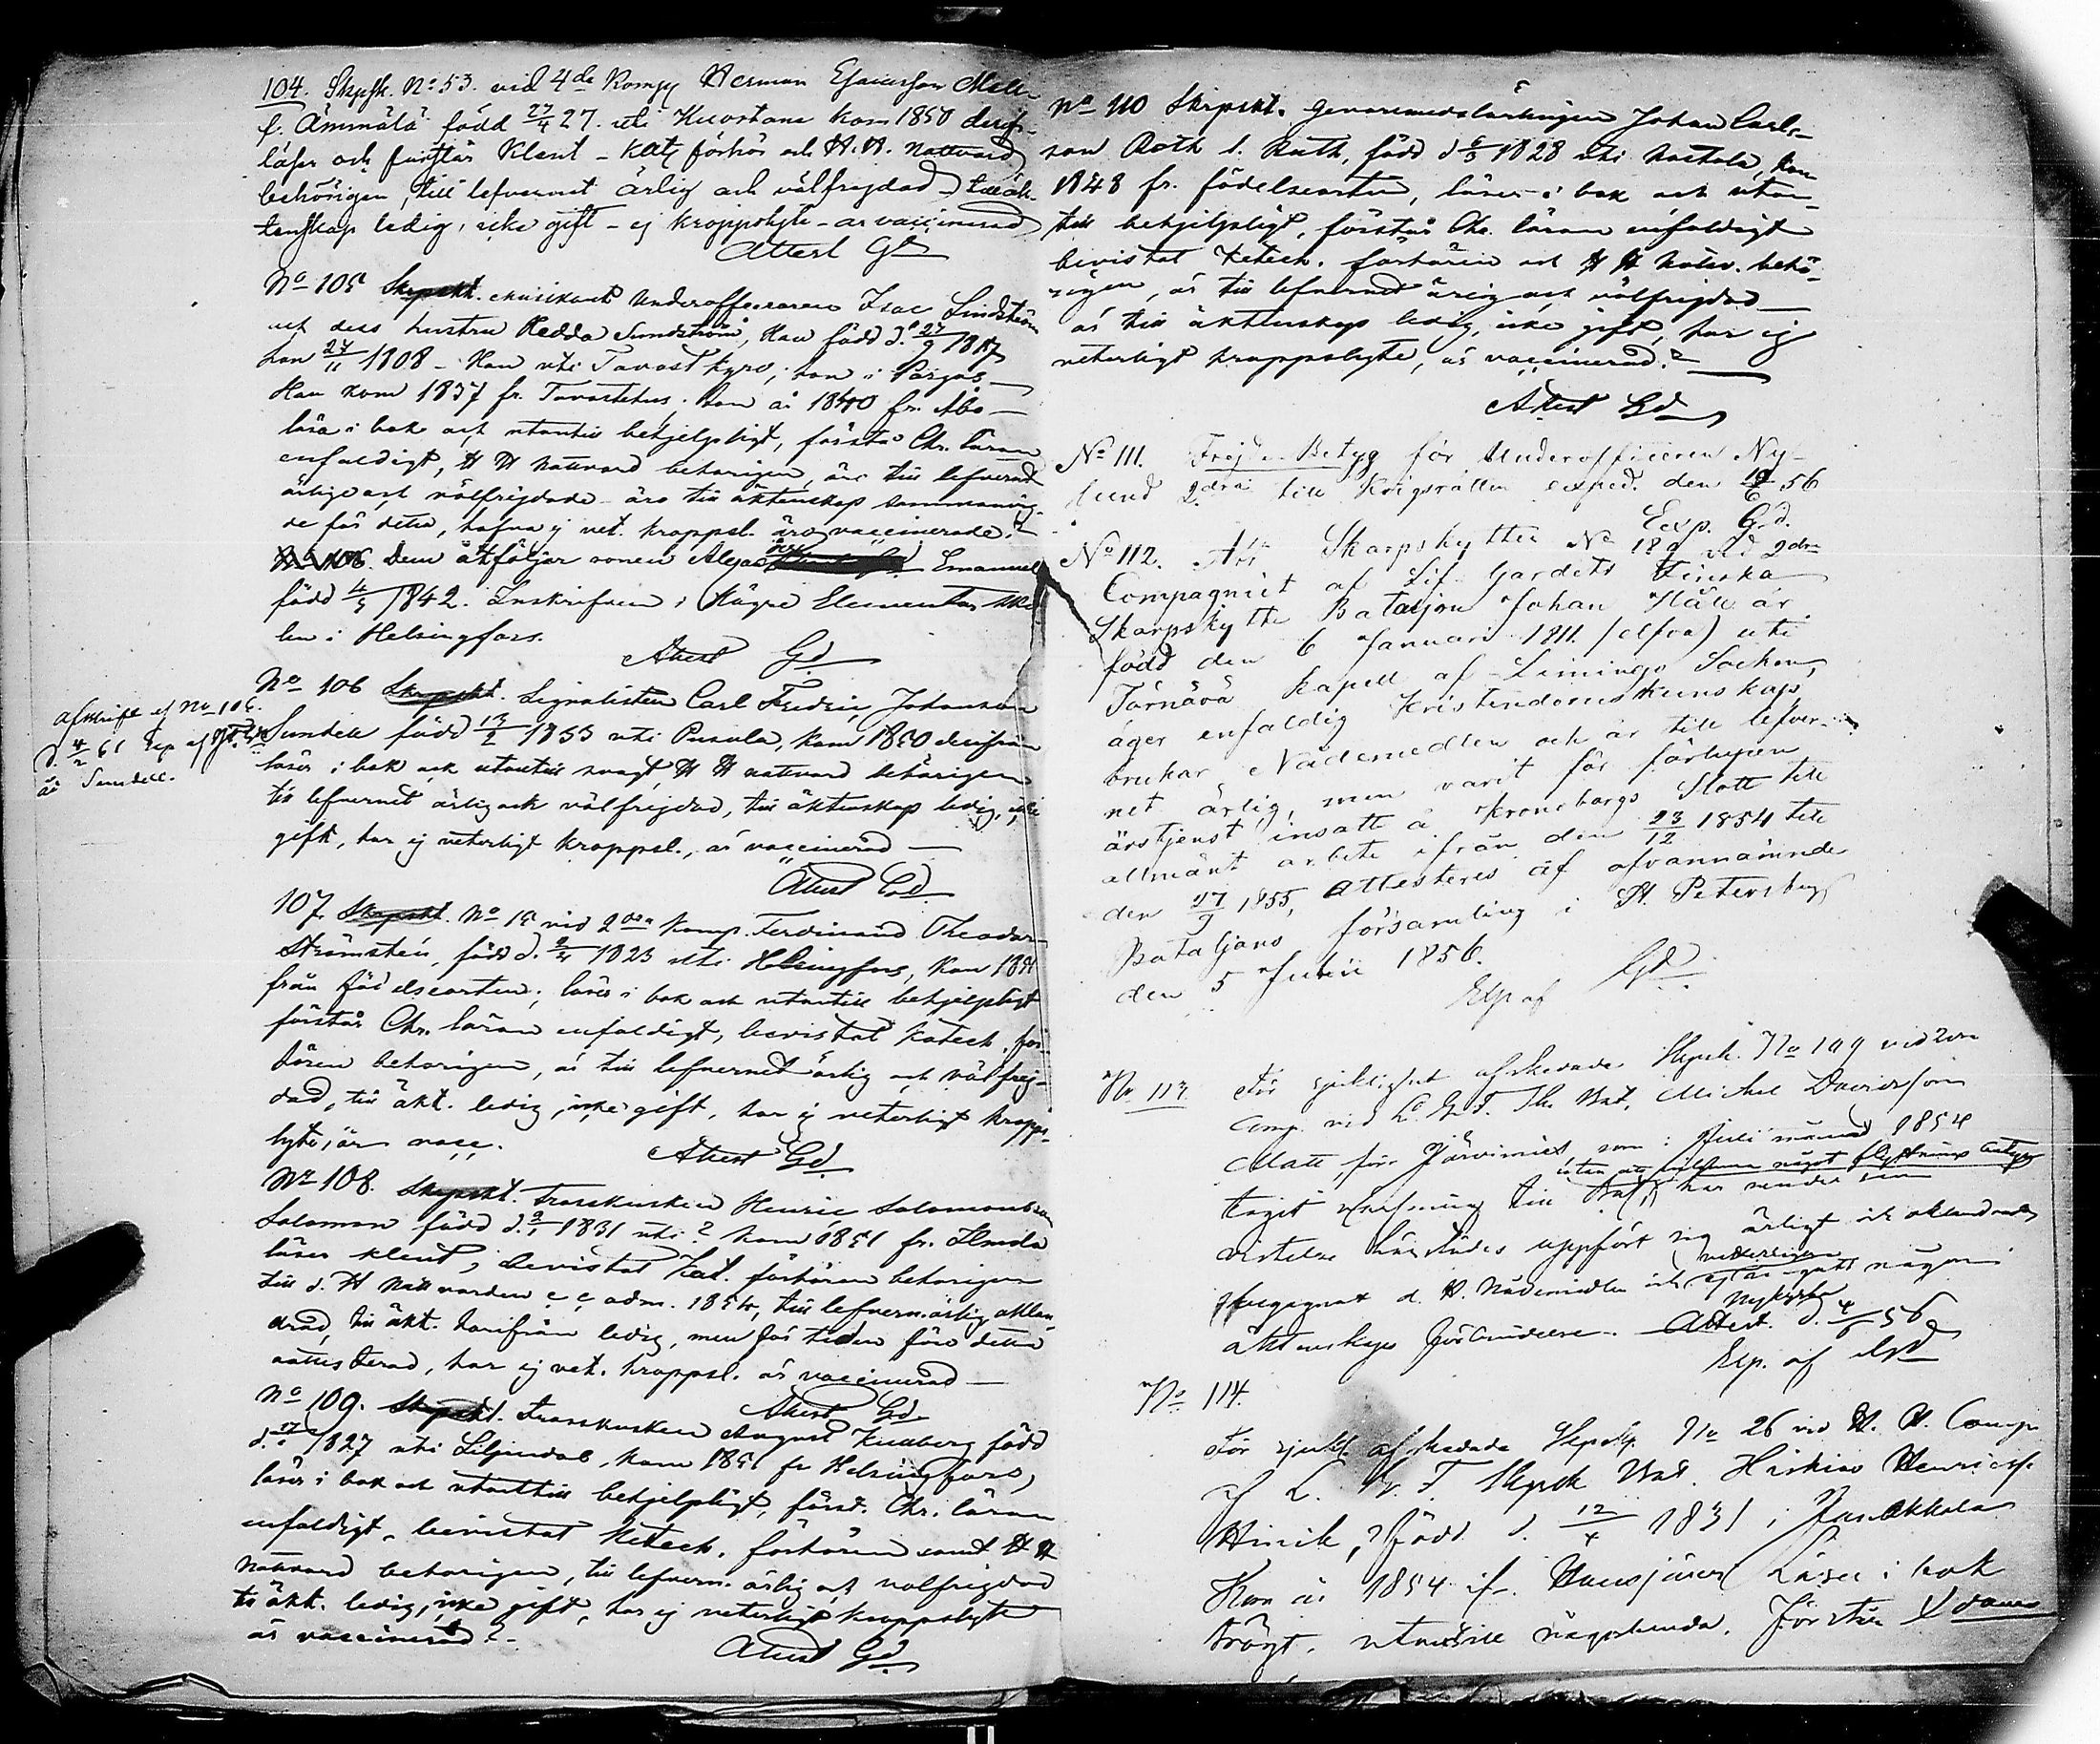 104. Skpsk. No 53. vid 4de Komp Herman Esaiasson
f. Ämmälä född 27/4 27. uti Kuortane kom 1850 derifr.
läser och förstår klent - Kat. förhör och H. H. Nattvard
behörigen, till lefvernet ärlig och välfrejdad - till äk-
tenskap ledig, icke gift - ej kroppslyte - är vaccinerad
Attest Gd
No 105 Skrpskt. musikant Underofficeraren Isac Lindström
och dess hustru Hedda Sundström, Han född d. 27/9 1817
hon 27/11 1808 - Han uti Tavastkyro, hon i Pargas -
Han kom 1837 fr. Tavastehus. hon år 1840 fr. Åbo -
läsa i bok och utantill behjelpligt, förstå Chr. läran
enfaldigt, H H Nattvard behörigen, äro till lefvernet
ärlige och välfrejdade - äro till äktenskap sammanvig-
de för detta, hafva ej vet. kroppsl. äro vaccinerade.
No 106. Dem åtföljer sonen Emanuel
född 4/5 1842. Inskrifven i Högre Elementar sko
len i Helsingfors.
Attest Gd
No 106 Skrpskt. Signalisten Carl Fredric Johansson
Sundell född 13/2 1833 uti Pusula, kom 1850 derifrån
läser i bok och utantill svagt, H H nattvard behörigen
till lefvernet ärlig och välfrejdad, till äktenskap ledig, icke
gift, har ej veterligt kroppsl., är vaccinerad -
Attest Gd
Afskrift af No 106.
d. 4/2 61 Exp af
år Sundell.
107. Skrpskt. No 15 vid 2dra Komp. Ferdinand Theodor
Strömstén, född d. 1823 uti Helsingfors, kom
från födelseorten; läser i bok och utantill behjelpligt
förstår Chr. läran enfaldigt, bevistat Katech. för-
hören behörigen, är till lefvernet ärlig och välfrej-
dad, till äkt. ledig, icke gift, har ej veterligt kropps-
lyte, är vacc.
Attest Gd
No 108. Skrpskt. Trosskusken Henric Salomonsson
Salomon född d. 1831 uti ? kom 1851 fr.
läser klent, bevistat Kat. förhören behörigen
till d. H Nattvarden adm. 1854, till lefvern. ärlig oklan-
drad, till äkt. härifrån ledig, men för tiden före detta
oattesterad, har ej vet. kroppsl. är vaccinerad -
Attest Gd
No 109. Skrpskt. Trosskusken August född
1827 uti Liljendal, kom 1851 fr Helsingfors,
läser i bok och utantill behjelpligt, först. Chr. läran
enfaldigt, bevistat Katech. förhören samt H H
Nattvard behörigen, till lefvern. ärlig och välfrejdad
till äkt. ledig, icke gift, har ej veterligt kroppslyte
är vaccinerad? -
Attest Gd
No 110 Skrpskt. Gevärsmedslärlingen Johan Carls-
son Roth l. Ruth, född d 1828 uti Nastola, kom
1848 fr. födelseorten, läser i bok och utan-
till behjelpligt, förstår Chr. läran enfaldigt
bevistat Katech. förhören och H H Nattv. behö-
rigen, är till lefvernet ärlig och välfrejdad -
är till äktenskap ledig, icke gift, har ej
veterligt kroppslyte, är vaccinerad.? -
Attest Gd
No 111. Frejde-Betyg för Underofficeren Ny-
lund 2dra till Krigsrätten exped. den 56
Exp. Gd.
No 112. Att Skarpskytten No 189 vid 2dra
Compagniet af Lif Gardets Finska
Skarpskytte Bataljon Johan är
född den 6 Januari 1811 (elfva) uti
Törnävä Kapell af Limingo Socken,
äger enfaldig Kristendomskunskap,
brukar Nådemedlen och är till lefver-
net ärlig, men varit för förlupen
årstjenst insatt å Kroneborgs Slott till
allmänt arbete ifrån den 23/12 1854 till
den 27/9 1855, Attesteres af ofvannämnde
Bataljons församling i St. Petersburg
den 5 Julii 1856.
Exp af Gd
No 113. För sjuklighet afskedade Skpsk. No 109 vid 2dra
Comp. vid L. G. F. Sk. Bat. Michel Davidsson
Matt från Järvimies, som i Juli månad 1854
utan att hitkomma något flyttnings betyg
taget till Bat., har under sin
vistelse härstädes uppfört sig ärligt och oklandradt
begagnat d. H. Nådemedlen och ej veterligen ingått någon
äktenskaps förbindelse. - Attest. d. 4/6 56
Nykyrka
Exp. af Gd
No 114.
För sjukl. afskedade Skpsk. No 26 vid H. H. Comp
af L. G. F. Skpsk Bat. Hiskias Henricss.
Hinik, ? född d. 12/4 1831 i Janakkala
Kom år 1854 ifr. Hausjärvi Läser i bok
trögt, utantill någorlunda. Förstår